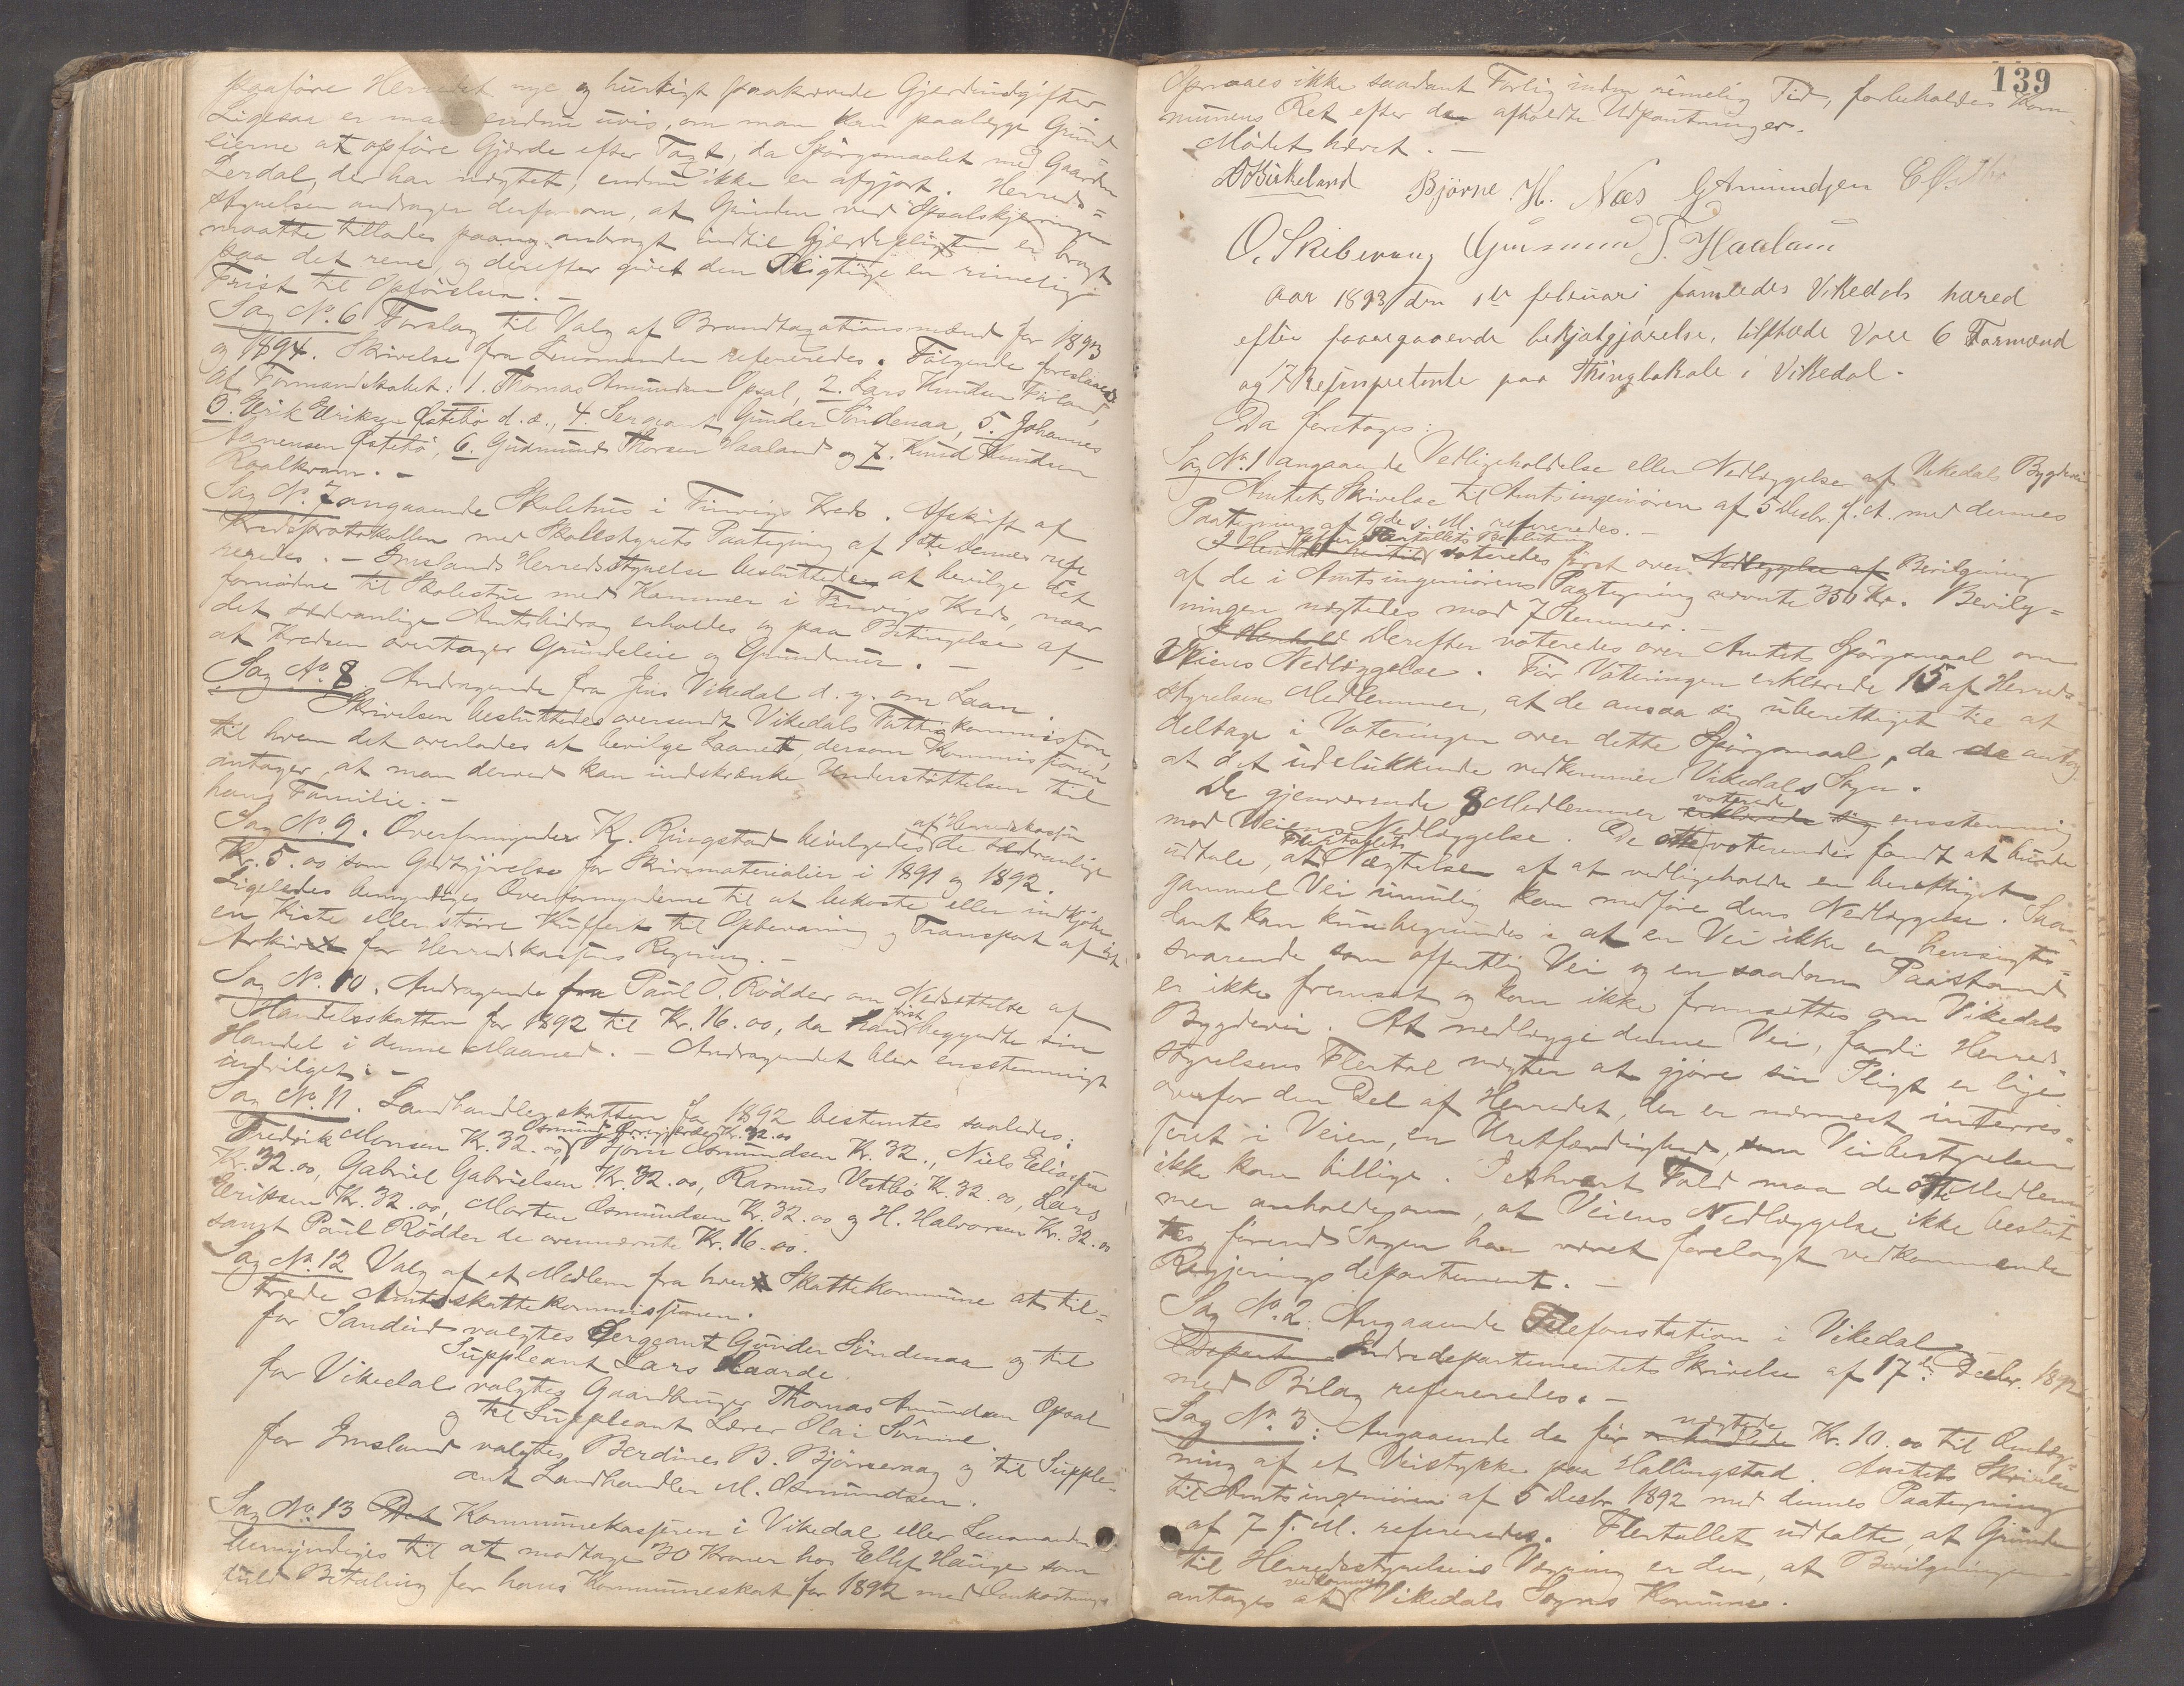 paaföre Herredet nye og hurtigt paakrævede Gjerdeudgifter.
Ligesaa er man endnu uvis, om man kan paalegge Grund
eierne at opföre Gjærde efter Taxt, da Spörgsmaalet med Gaarden
Lerdal, der har nægtet, endnu ikke er afgjort. Herreds=
styrelsen andrager derfor om, at Grinden ved Opsalskjæringen
maatte tillades paany anbragt indtil Gjerdepligten er bragt
paa det rene og derefter givet den Pligtige en rimelig
Frist til Opförelsen. –
Sag No. 6 Forslag til Valg af Brandtaxationsmænd for 1893
og 1894. Skrivelse fra Lensmanden refereredes. Fölgende foreslaaes
af Formandskabet: 1. Thomas Amundsen Opsal, 2. Lars Knudsen
3. Erik Eriksen Östebö d. æ., 4. Sergeant Gunder Söndenaa, 5. Johannes
Östebö, 6. Gudmund Thorsen Haaland og 7. Knud Knudsen
Raalkvam. –
Sag No. 7 angaaende Skolehus i Kreds. Afskrift af
Kredsprotokollen med Skolestyrets Paategning af 1ste dennes refe
reredes. – Imslands Herredsstyrelse besluttedes at bevilge det
fornödne til Skolestue med Kammer i Kreds, naar
det sædvanlige Amtsbidrag erholdes og paa Betingelse af,
at Kredsen overtager Grundeleie og Grundmur. –
Sag No 8. Andragende fra Jens Vikedal d. y. om Laan.
Skrivelsen besluttedes oversendt Vikedals Fattigkommission,
til hvem det overlades at bevilge Laanet, dersom Kommissionen
antager, at man derved kan indskrænke Understöttelsen til
hans Familie. –
Sag No. 9. Overformynder K. Ringstad bevilgedes af Herredskassen de sædvanlige
Kr. 5.00 som Godtgjörelse for Skrivematerialier i 1891 og 1892.
Ligeledes bemyndiges Overformynderne til at bekoste eller indkjöbe
en Kiste eller större Kuffert til Opbevaring og Transport af sit
Arkiv for Herredskassens Regning. –
Sag No. 10. Andragende fra Paul O. Rödder om Nedsættelse af
Handelsskatten for 1892 til Kr. 16.00, da han först begyndte sin
Handel i denne Maaned. – Andragendet blev enstemmigt
indvilget. –
Sag No. 11. Landhandlerskatten for 1892 bestemtes saaledes:
Fredrik Monsen Kr. 32.00, Björn Osmundsen Kr. 32., Niels Eliassen
Kr. 32.00, Gabriel Gabrielsen Kr. 32.00, Rasmus Vestbö Kr. 32.00, Lars
Eriksen Kr. 32.00, Morten Osmundsen Kr. 32.00 og H. Halvorsen Kr. 32.00
samt Paul Rödder de ovennævnte Kr. 16.00.
Sag No. 12 Valg af et Medlem fra hver Skattekommune at til=
træde Amtsskattekommissionen.
for Sandeid valgtes Sergeant Gunder Söndenaa og til
Suppleant Lars Vaarde.
for Vikedal valgtes Gaardbruger Thomas Amundsen Opsal
og til Suppleant Lærer Olai
for Imsland valgtes Berdines B. Björnevaag og til Supple=
ant Landhandler M. Osmundsen.
Sag No. 13 Kommunekassereren i Vikedal eller Lensmanden
bemyndiges til at modtage 30 Kroner hos Ellef Hauge som
fuld Betaling for hans Kommuneskat for 1892 med Omkostninger
139
Opnaaes ikke saadant Forlig inden rimelig Tid, forbeholdes Kom-
munens Ret efter den afholdte Udpantninger.
Mödet hævet. –
Birkeland Björne H. Næs G Amundsen
O. Skibevaag Gudmund T. Haaland
Aar 1893 den 1te februari samledes Vikedals hæred
efter foregaaende bekjntgjörelse, tilstæde Vare 6 Formænd
og 17 Representente paa Thinglokale i Vikedal.
Da foretoges:
Sag No. 1 angaaende Vedligeholdelse eller Nedlæggelse af Vikedals Bygdevei
Amtets Skrivelse til Amtsingeniören af 5 Decbr. f. A. med dennes
Paategning af 9de s. M. refereredes. –
Efter Flertallets Beslutning voteredes först over Nedlæggelse af Bevilgning
af de i Amtsingeniörens Paategning nævnte 350 Kr. Bevilg=
ningen nægtedes mod 7 Stemmer. –
I Henhold Derefter voteredes over Amtets Spörgsmaal om
Veiens Nedlæggelse. För Voteringen erklærede 15 af Herreds=
styrelsens Medlemmer, at de ansaa sig uberettiget til at
deltage i Voteringen over dette Spörgsmaal, da de antog
at det udelukkende vedkommer Vikedals Sogn.
De gjenværende 8 Medlemmer voterede erklærede sig enstemmig
mod Veiens Nedlæggelse. De otte voterende fandt at burde
udtale, at Flertallets Nægtelse af at vedligeholde en berettiget
gammel Vei umulig kan medföre dens Nedlæggelse. Saa-
dant kan kun begrundes i at en Vei ikke er hensigts=
svarende som offentlig Vei og en saadan Paastand
er ikke fremsat og kan ikke fremsættes om Vikedals
Bygdevei. At nedlægge denne Vei, fordi Herreds=
styrelsens Flertal nægter at gjöre sin Pligt er lige
overfor den Del af Herredet, der er nærmest interres=
seret i Veien, en Uretfærdighed, som Veibestyrelsen
ikke kan billige. I ethvert Fald maa de otte Medlem-
mer anholde om, at Veiens Nedlæggelse ikke beslut
tes, förend Sagen har været forelagt vedkommende
Regjeringsdepartement. –
Sag No. 2. Angaaende Telefonstation i Vikedal
Indredepartementets Skrivelse af 17de Decbr. 1892
med Bilag refereredes. –
Sag No. 3: Angaaende de för nægtede Kr. 10.00 til Omlæg=
ning af et Veistykke paa Hallingstad. Amtets Skrivelse
til Amtsingeniören af 5 Decbr 1892 med dennes Paategning
af 7 s. M. refereredes. Flertallet udtalte, at Grunden
til Herredsstyrelsens Vægring er den, at Bevilgningen
antages at vedkomme Vikedals Sogns Kommune.